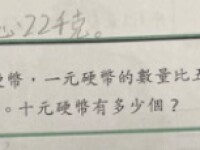 22千克。
硬幣，一元硬幣的數量比五
。十元硬幣有多少個？